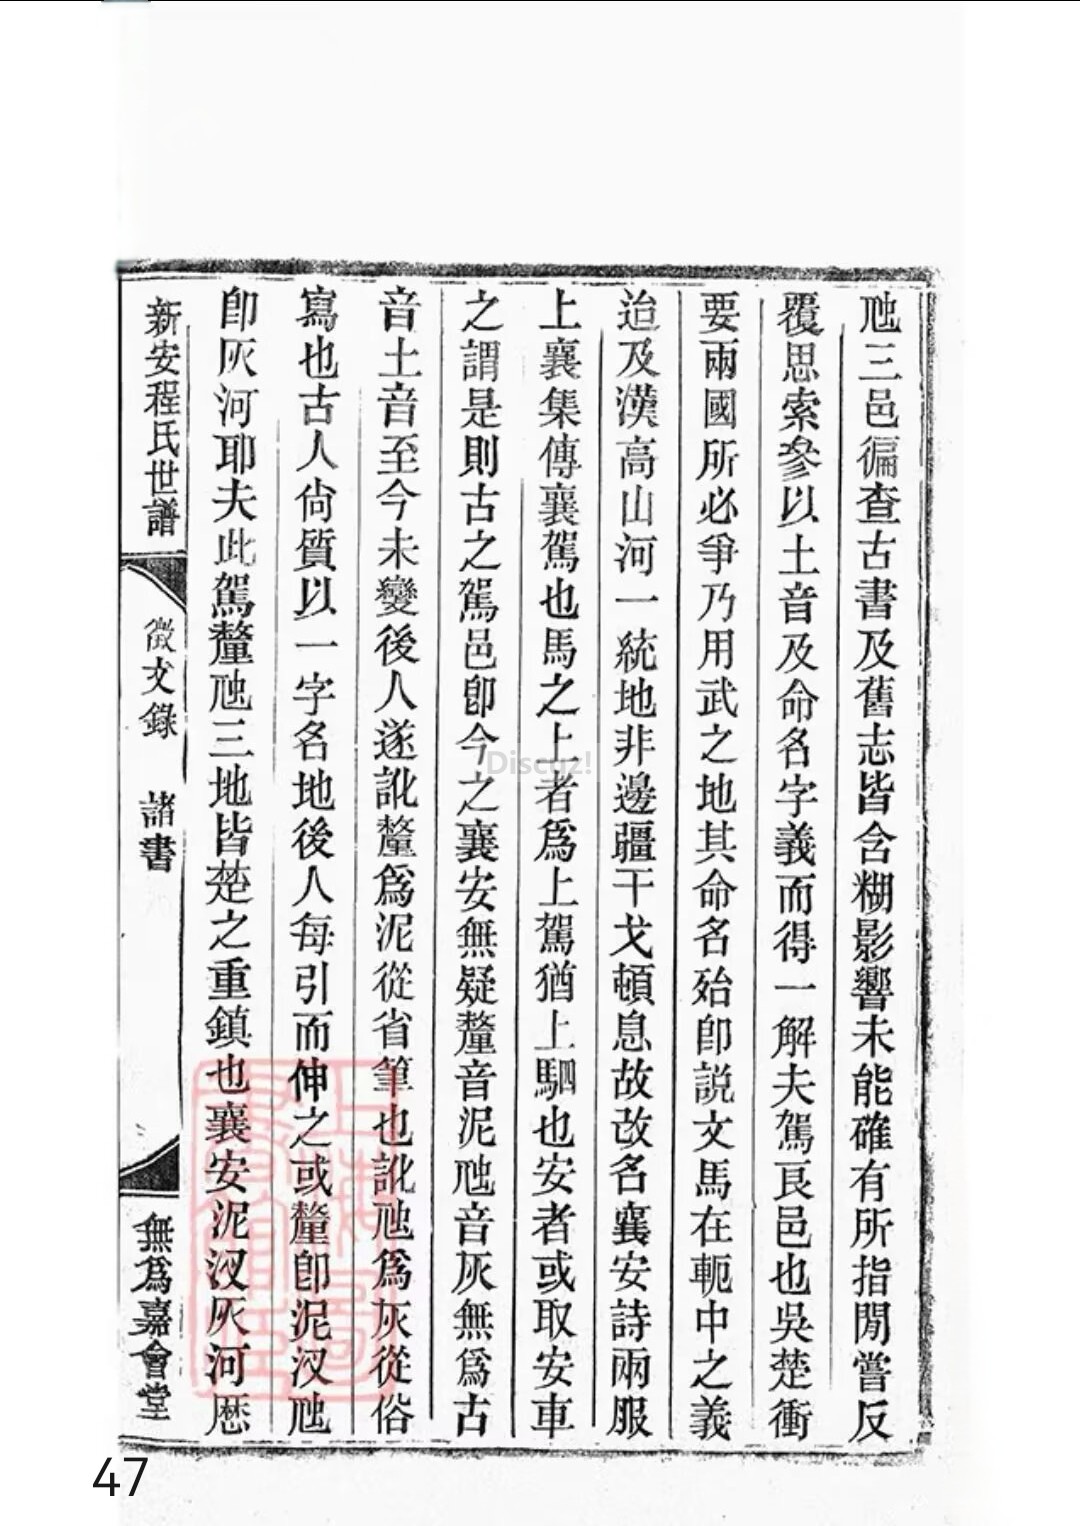 虺三邑徧查古書及舊志皆含糊影響未能確有所指閒嘗反
覆思索參以土音及命名字義而得一解夫駕良邑也吳楚衝
要兩國所必爭乃用武之地其命名殆卽說文馬在軛中之義
迨及漢高山河一統地非邊疆干戈頓息故改名襄安詩兩服
上襄集傳襄駕也馬之上者爲上駕猶上駟也安者或取安車
之謂是則古之駕邑卽今之襄安無疑釐音泥虺音灰無爲古
音土音至今未變後人遂訛釐爲泥從省筆也訛虺爲灰從俗
寫也古人尙質以一字名地後人每引而伸之或釐卽泥汊虺
卽灰河耶夫此駕釐虺三地皆楚之重鎮也襄安泥汊灰河歷
新安程氏世譜
徵文錄
諸書
無爲嘉會堂
Discuz!
47